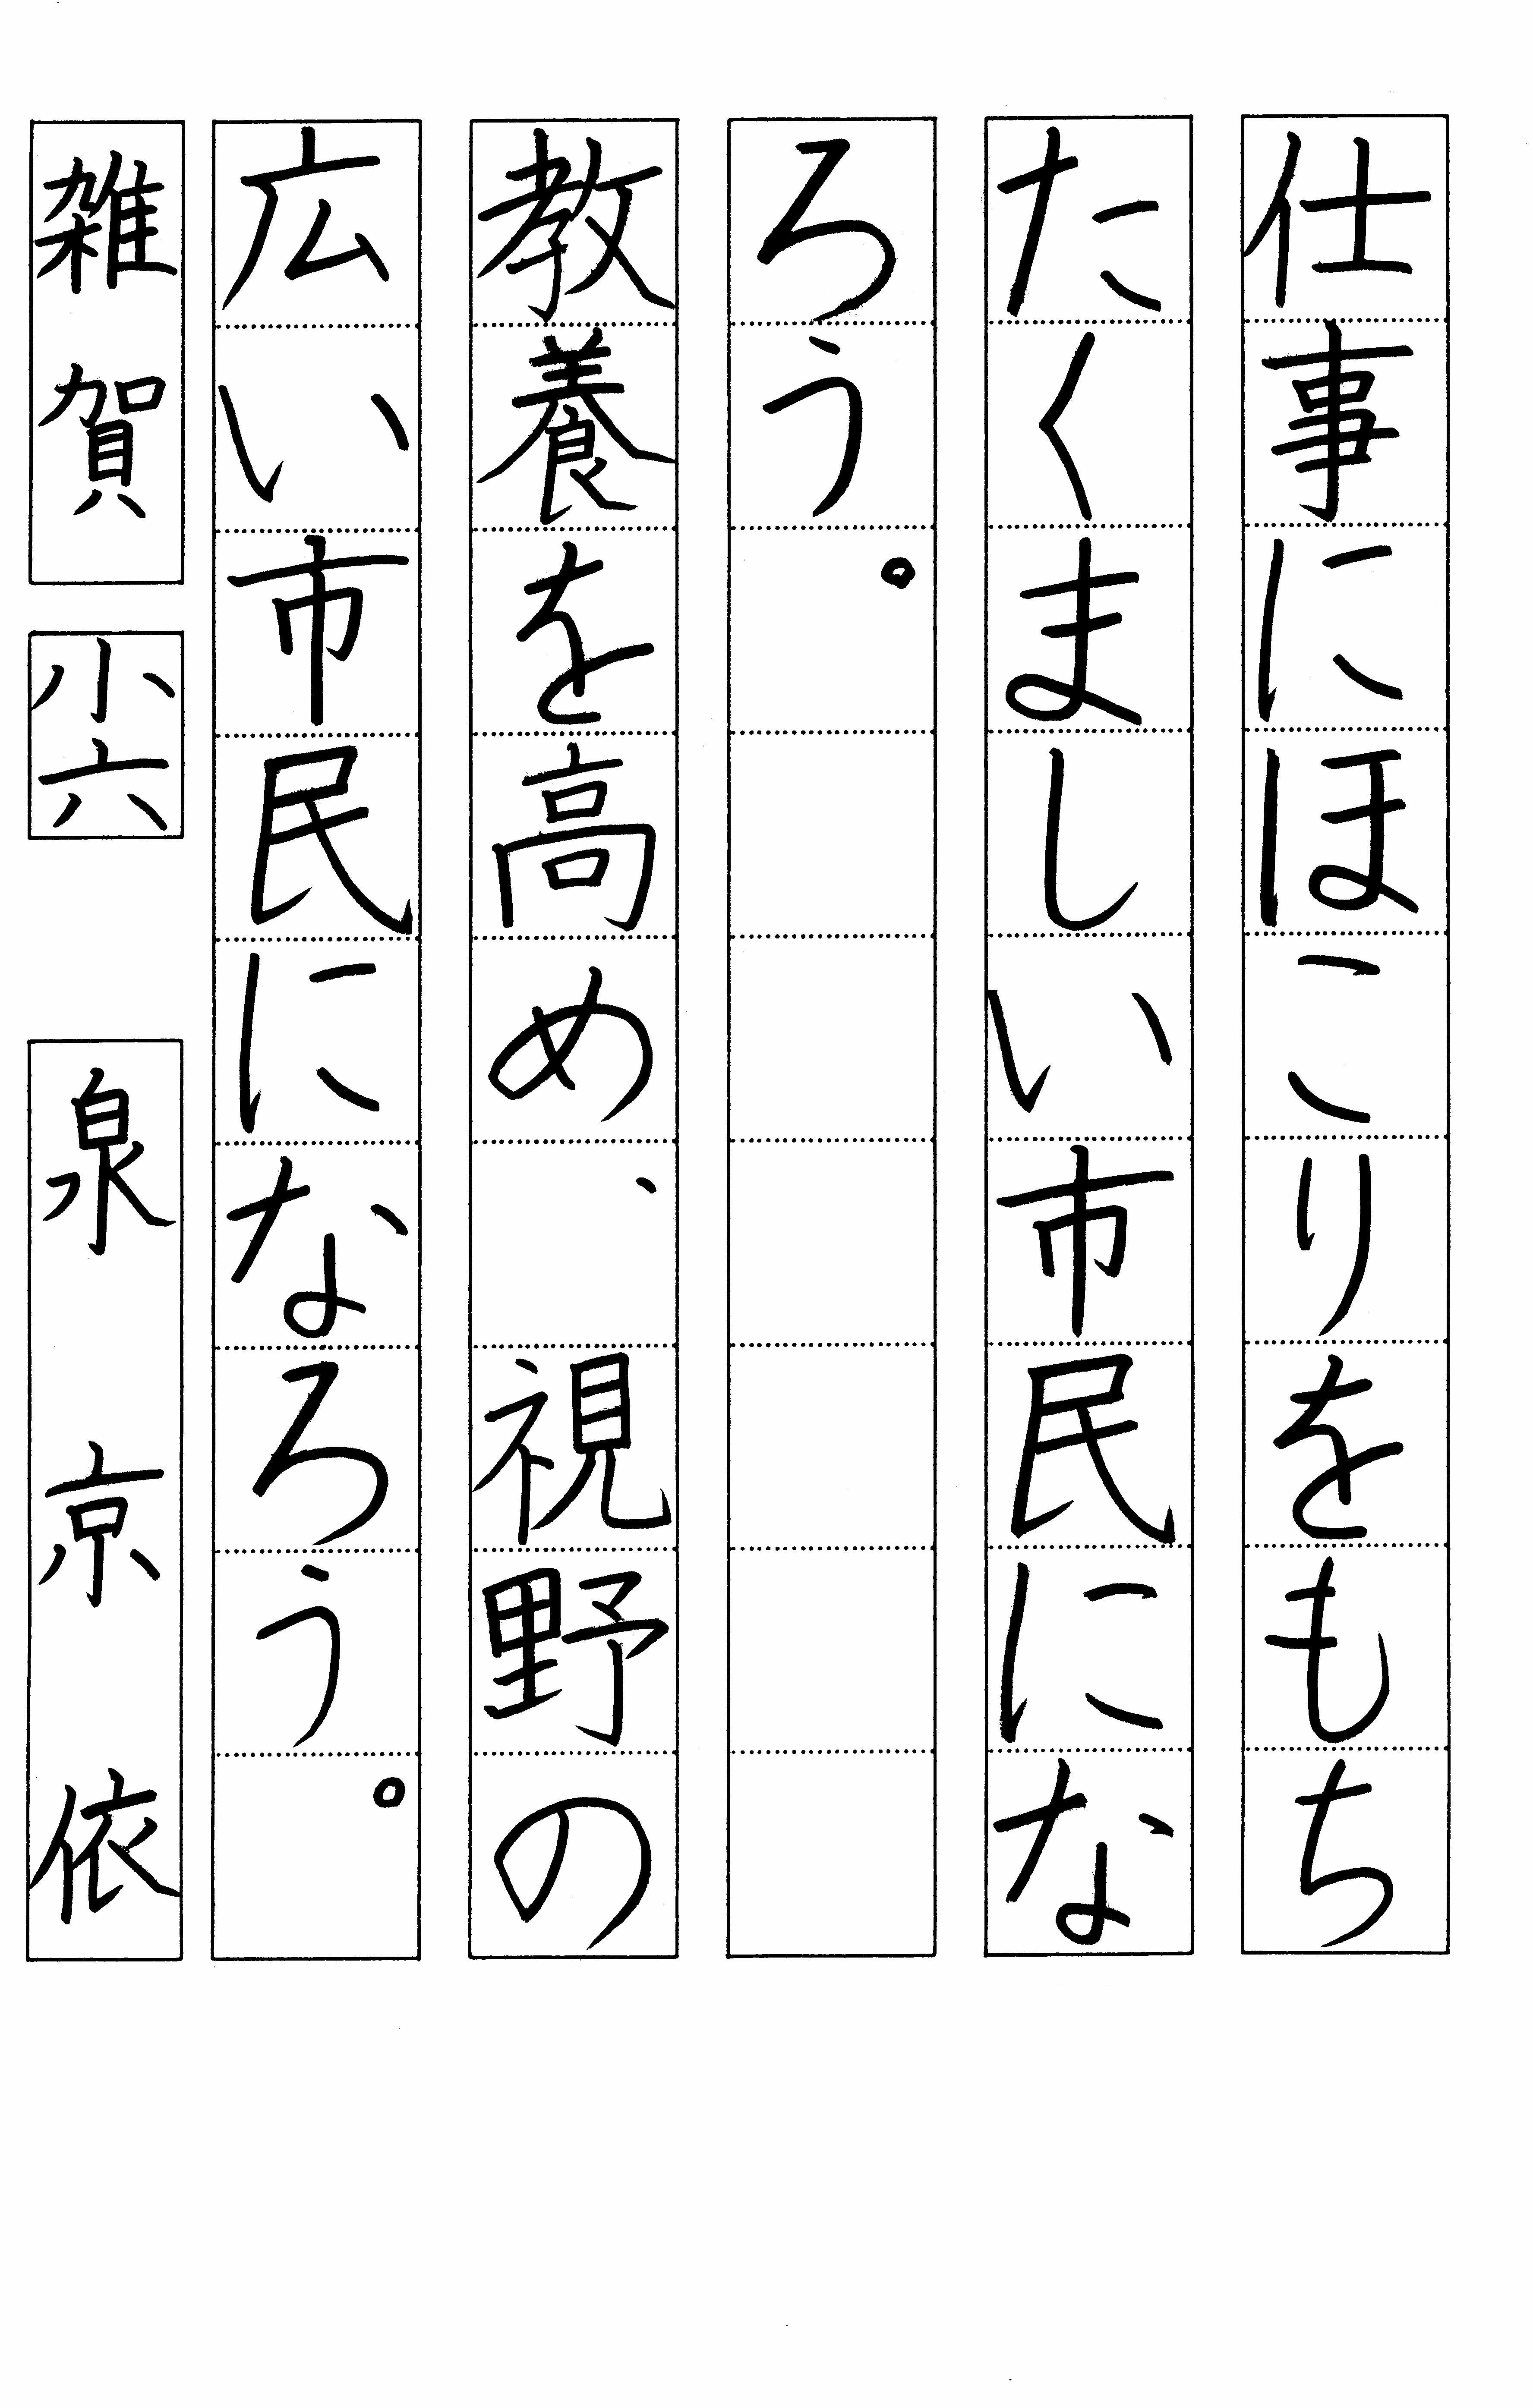 仕事にほこりをもち
たくましい市民にな
ろう。
教養を高め、視野の
広い市民になろう。
雑賀 小六 泉京依